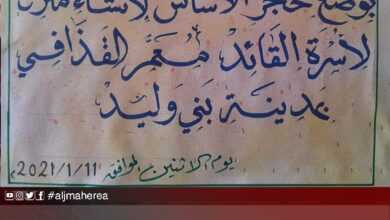 بوضع حجر الأساس لإنشاء
لأسرة القائد معمر القذافي
بمدينة بني وليد
يوم الاثنين الموافق 2021/1/11م
#aljmaherea